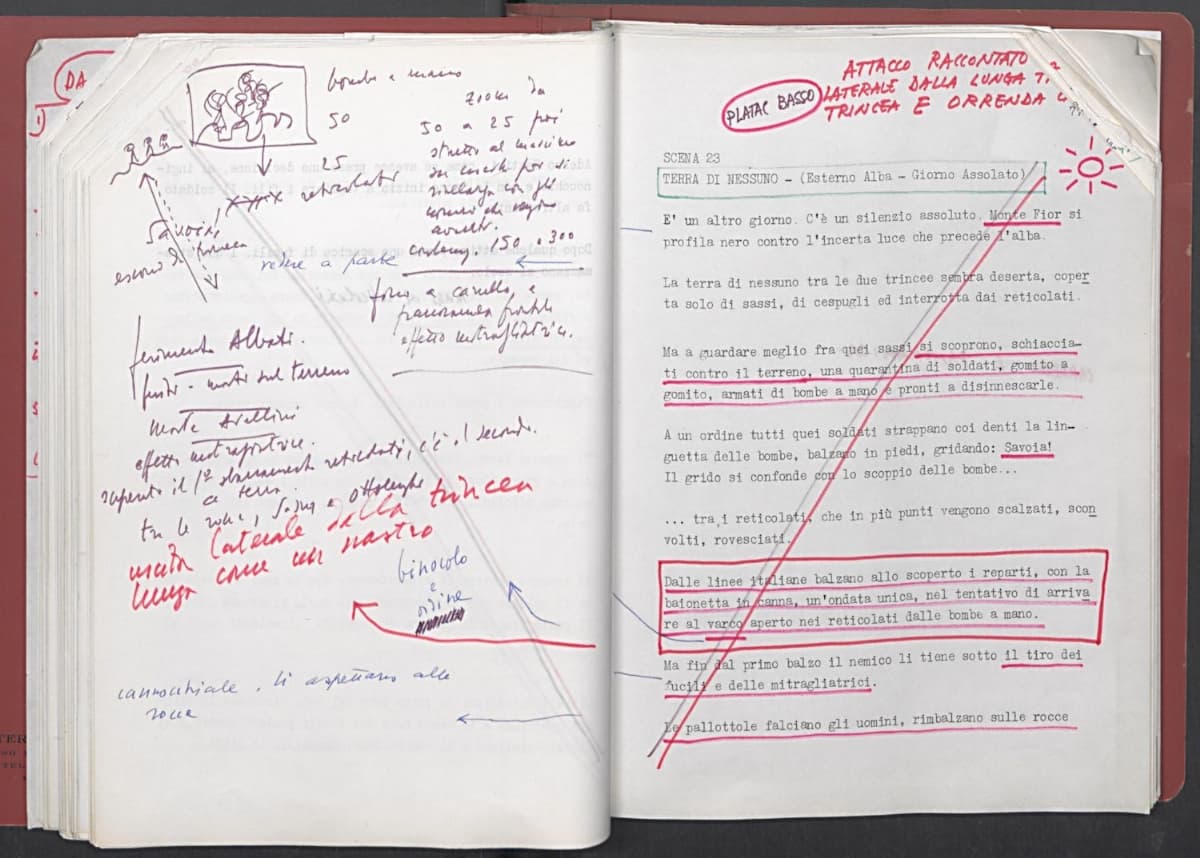 DA
bombe a mano
50
25
reticolati
Zoom da
50 a 25 poi
Savoia!
escono di trincea
vedere a parte
150 e 300
fuoco a cavallo, a
effetto mitragliatrice.
ferimento Albati.
morti sul terreno
morte Avellini
effetto mitragliatrice.
superato il 1° sbarramento reticolati, c'è il secondo.
a terra.
tra le rocce, e Ottolenghi
uscita laterale dalla trincea
lunga come un nastro
binocolo
e
ordine
cannocchiale. li aspettano alle
rocce
PLATAC BASSO
ATTACCO RACCONTATO
LATERALE DALLA LUNGA T.
TRINCEA E ORRENDA
SCENA 23
TERRA DI NESSUNO - (Esterno Alba - Giorno Assolato)
E' un altro giorno. C'è un silenzio assoluto. Monte Fior si
profila nero contro l'incerta luce che precede l'alba.
La terra di nessuno tra le due trincee sembra deserta, coper
ta solo di sassi, di cespugli ed interrotta dai reticolati.
Ma a guardare meglio fra quei sassi si scoprono, schiaccia-
ti contro il terreno, una quarantina di soldati, gomito a
gomito, armati di bombe a mano e pronti a disinnescarle.
A un ordine tutti quei soldati strappano coi denti la lin-
guetta delle bombe, balzano in piedi, gridando: Savoia!
Il grido si confonde con lo scoppio delle bombe...
... tra i reticolati, che in più punti vengono scalzati, scon
volti, rovesciati.
Dalle linee italiane balzano allo scoperto i reparti, con la
baionetta in canna, un'ondata unica, nel tentativo di arriva
re al varco aperto nei reticolati dalle bombe a mano.
Ma fin dal primo balzo il nemico li tiene sotto il tiro dei
fucili e delle mitragliatrici.
Le pallottole falciano gli uomini, rimbalzano sulle rocce